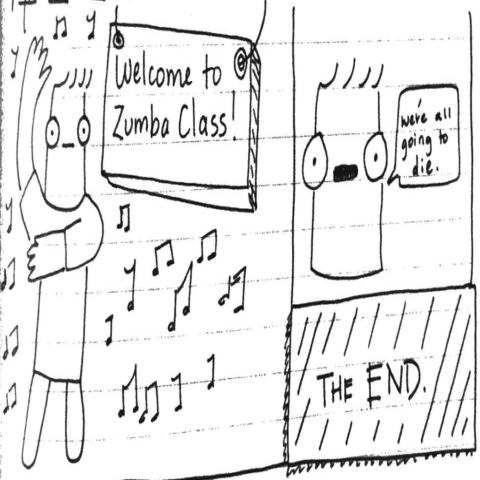 Welcome to
Zumba Class!
we're all
going to
die.
THE END.